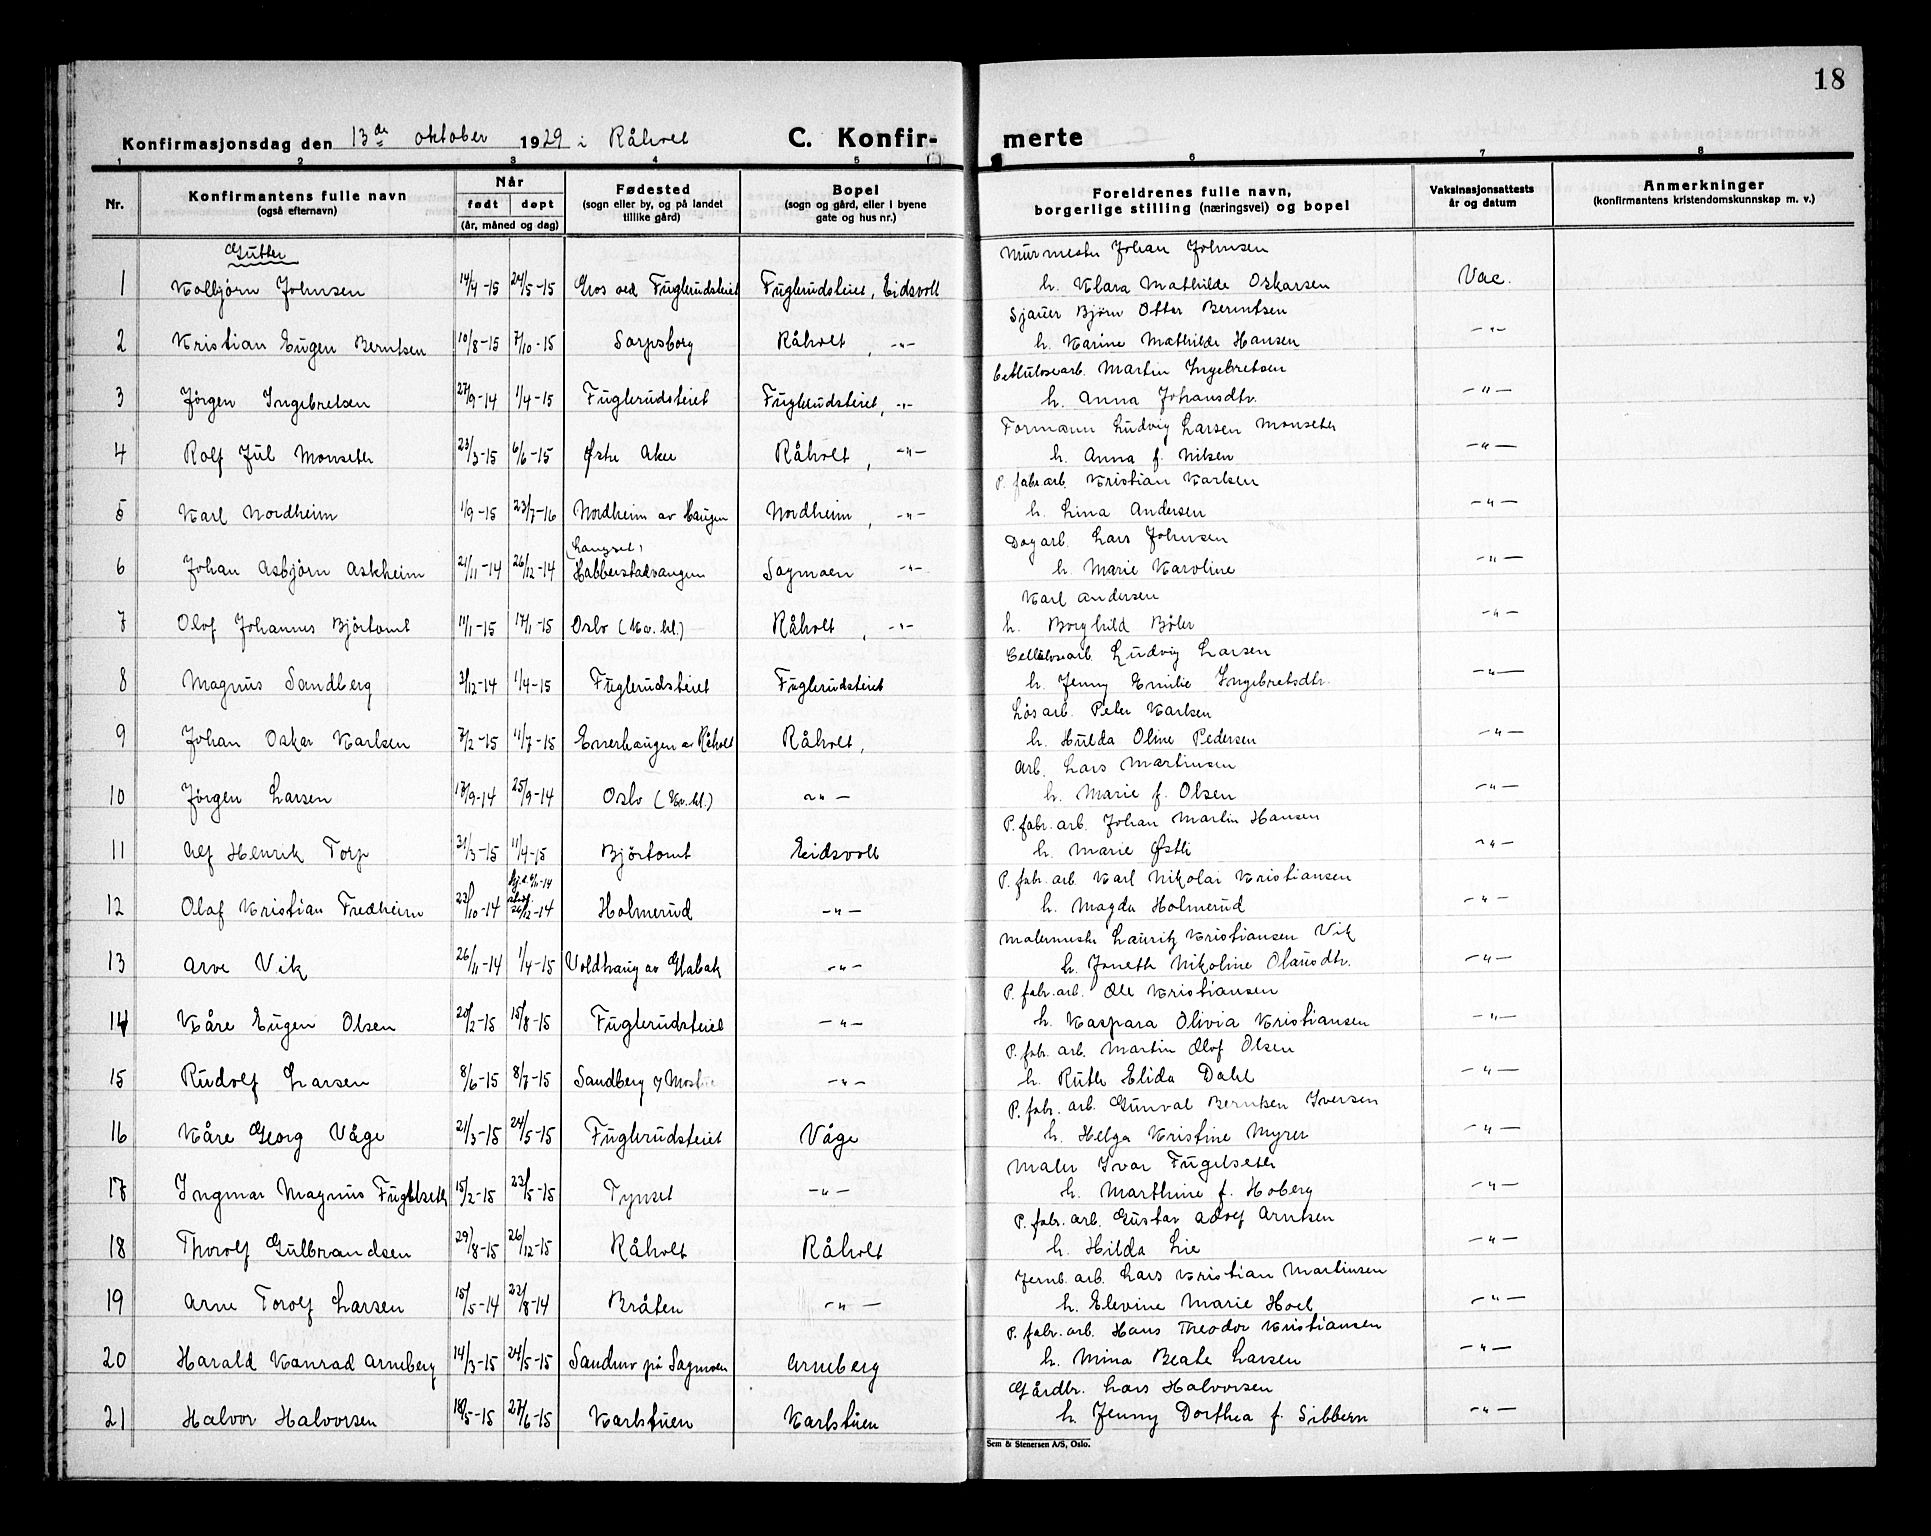 18
Konfirmasjonsdag den 13de oktober 1929 i Råholt C. Konfir- merte
1 2 3 4 5 6 7 8
Nr. Konfirmantens fulle navn (også efternavn) Når født døpt (år, måned og dag) Fødested (sogn eller by, og på landet tillike gård) Bopel (sogn og gård, eller i byene gate og hus nr.) Foreldrenes fulle navn, borgerlige stilling (næringsvei) og bopel Vaksinasjonsattests år og datum Anmerkninger (konfirmantens kristendomskunnskap m. v.)
Gutter
Murmester Johan Johnsen
1 Kolbjørn Johnsen 14/4-15 24/5-15 Fuglerudsteiet Fuglerudsteiet, Eidsvoll h. Klara Mathilde Oskarsen Vac.
Sjauer Bjørn Ottar Berntsen
2 Kristian Eugen Berntsen 10/8-15 7/10-15 Sarpsborg Råholt, -"- h. Karine Mathilde Hansen -"-
Cellulosearb. Martin Ingebretsen
3 Jørgen Ingebretsen 27/9-14 1/4-15 Fuglerudsteiet Fuglerudsteiet, -"- h. Anna Johansdtr. -"-
Formann Ludvig Larsen Monseter
4 Rolf Jul Monseter 23/3-15 6/6-15 Østre Aker Råholt, -"- h. Anna f. Nilsen -"-
P. fabr.arb. Kristian Karlsen
5 Karl Nordheim 1/9-15 23/7-16 Nordheim av Haugen Nordheim, -"- h. Lina Andersen -"-
Dagarb. Lars Johnsen
6 Johan Asbjørn Askheim 21/11-14 26/12-14 (Langset) Habberstadvangen Sagmoen -"- h. Marie Karoline -"-
Karl Andersen
7 Olof Johannes Bjørtomt 11/1-15 17/1-15 Oslo (Kv. kl.) Råholt, -"- h. Borghild Bøler -"-
Cellulosearb. Ludvig Larsen
8 Magnus Sandberg 3/12-14 1/4-15 Fuglerudsteiet Fuglerudsteiet h. Jenny Emilie Ingebretsdtr. -"-
Løsarb. Peter Karlsen
9 Johan Oskar Karlsen 7/2-15 11/7-15 Enerhaugen av Råholt Råholt, h. Hulda Oline Pedersen -"-
Arb. Lars Martinsen
10 Jørgen Larsen 17/9-14 25/9-14 Oslo (Kv. kl.) -"- h. Marie f. Olsen -"-
P. fabr. arb. Johan Martin Hansen
11 Alf Henrik Torp 31/3-15 11/4-15 Bjørtomt Eidsvoll h. Marie Østli -"-
P. fabr. arb. Karl Nikolai Kristiansen
12 Olaf Kristian Fredheim 23/10-14 26/12-14 Holmerud -"- h. Magda Holmerud -"-
Malermester Lauritz Kristiansen Vik
13 Arve Vik 26/11-14 1/4-15 Voldhaug av Habak -"- h. Janeth Nikoline Olausdtr. -"-
P. fabr. arb. Ole Kristiansen
14 Kåre Eugen Olsen 20/2-15 15/8-15 Fuglerudsteiet -"- h. Kaspara Olivia Kristiansen -"-
P. fabr. arb. Martin Olof Olsen
15 Rudolf Larsen 8/6-15 8/7-15 Sandberg -"- h. Ruth Elida Dahl -"-
P. fabr. arb. Gunval Berntsen Iversen
16 Kåre Georg Våge 21/3-15 24/5-15 Fuglerudsteiet Våge h. Helga Kristine Myrer -"-
Maler Ivar Fugelseter
17 Ingmar Magnus Fugelseter 15/2-15 23/5-15 Tynset -"- h. Marthine f. Hoberg -"-
P. fabr. arb. Gustav Adolf Arntsen
18 Thorolf Gulbrandsen 29/8-15 26/12-15 Råholt Råholt h. Hilda Lie -"-
Jernb. arb. Lars Kristian Martinsen
19 Arne Torolf Larsen 15/5-14 22/8-14 Bråten -"- h. Elevine Marie Hoel -"-
P. fabr. arb. Hans Theodor Kristiansen
20 Harald Konrad Arneberg 14/3-15 24/5-15 Sandmo på Sagmoen Arneberg h. Mina Beate Larsen -"-
Gårdbr. Lars Halvorsen
21 Halvor Halvorsen 18/5-15 27/6-15 Karlstuen Karlstuen h. Jenny Dorthea f. Sibbern -"-
Sem & Stenersen A/S, Oslo.